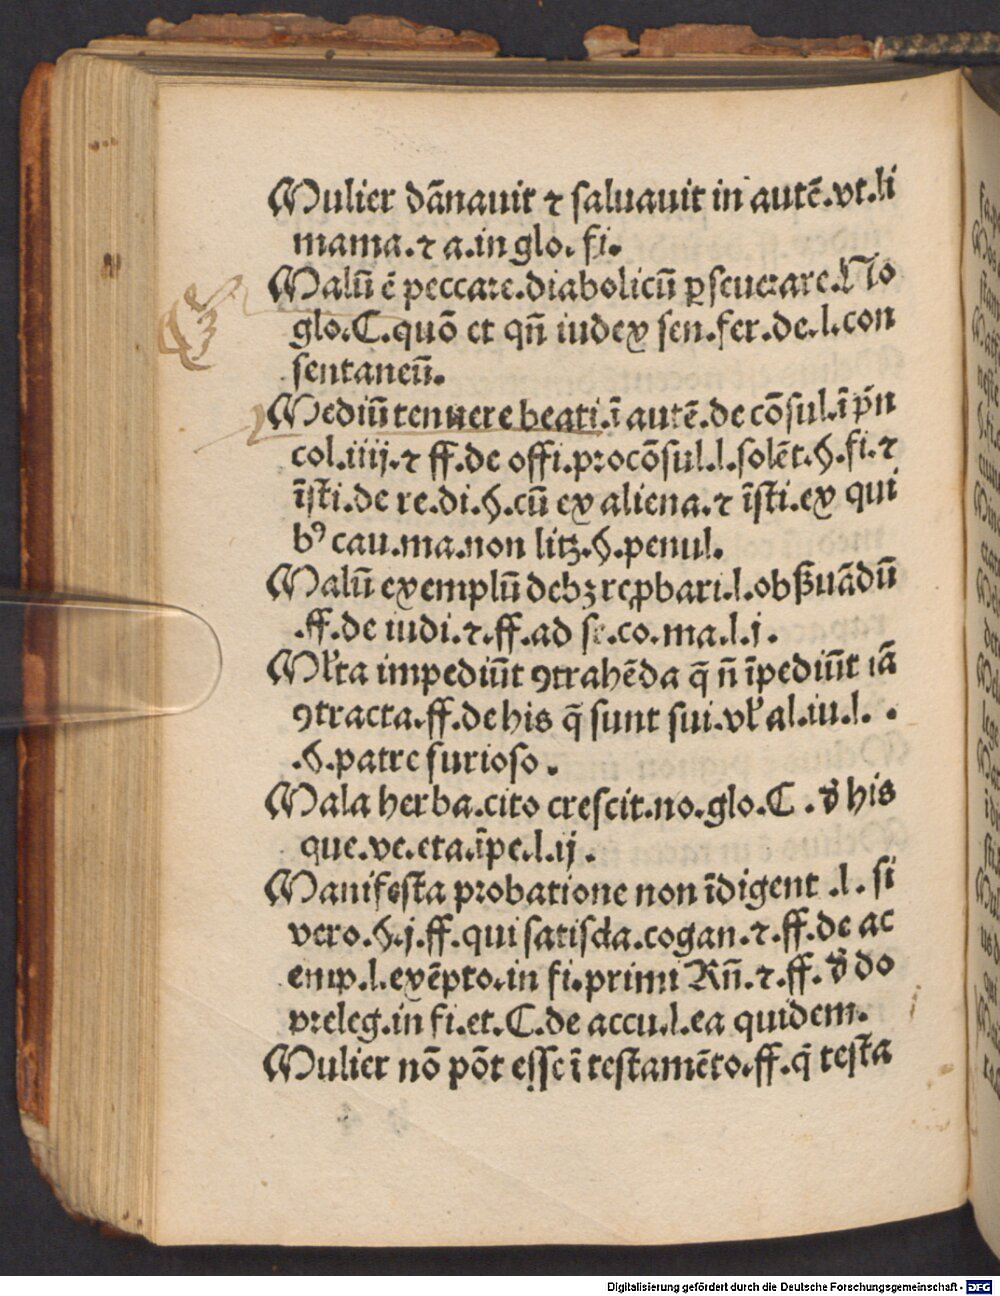 Mulier dānauit ⁊ saluauit in autē.vt.li
mama.⁊ a.in glo. fi.
Malū ē peccare.diabolicū ꝑseuerare.No
glo.C.quō et qn̄ iudex sen.fer.de.l.con
sentaneū.
Mediū tenuere beati.ī autē.de cōsul.ī pn̄
col.iiij.⁊ ff.de offi.procōsul.l.solēt.§.fi.⁊
īsti.de re.di.§.cū ex aliena.⁊ īsti.ex qui
bꝰ cau.ma.non litꝫ.§.penul.
Malū exemplū debꝫ rep̱bari.l.obẞuādū
.ff.de iudi.⁊.ff.ad co.ma.l.j.
Ml'ta impediūt ꝯtrahēda q̄ n̄ īpediūt iā
ꝯtracta.ff.de his q̄ sunt sui.vl' al.iu.l. .
.§.patre furioso.
Mala herba.cito crescit.no.glo.C.ꝺ̕ his
que.ve.eta.īpe.l.ij.
Manifesta probatione non īdigent .l. si
vero.§.j.ff.qui satisda.cogan.⁊.ff.de ac
emp.l.exēpto.in fi.primi Rn̄.⁊.ff.ꝺ̕ do
preleg.in fi.et.C.de accu.l.ea quidem.
Mulier nō pōt esse ī testamēto.ff.q̄ testa
Digitalisierung gefördert durch die Deutsche Forschungsgemeinschaft - DFG